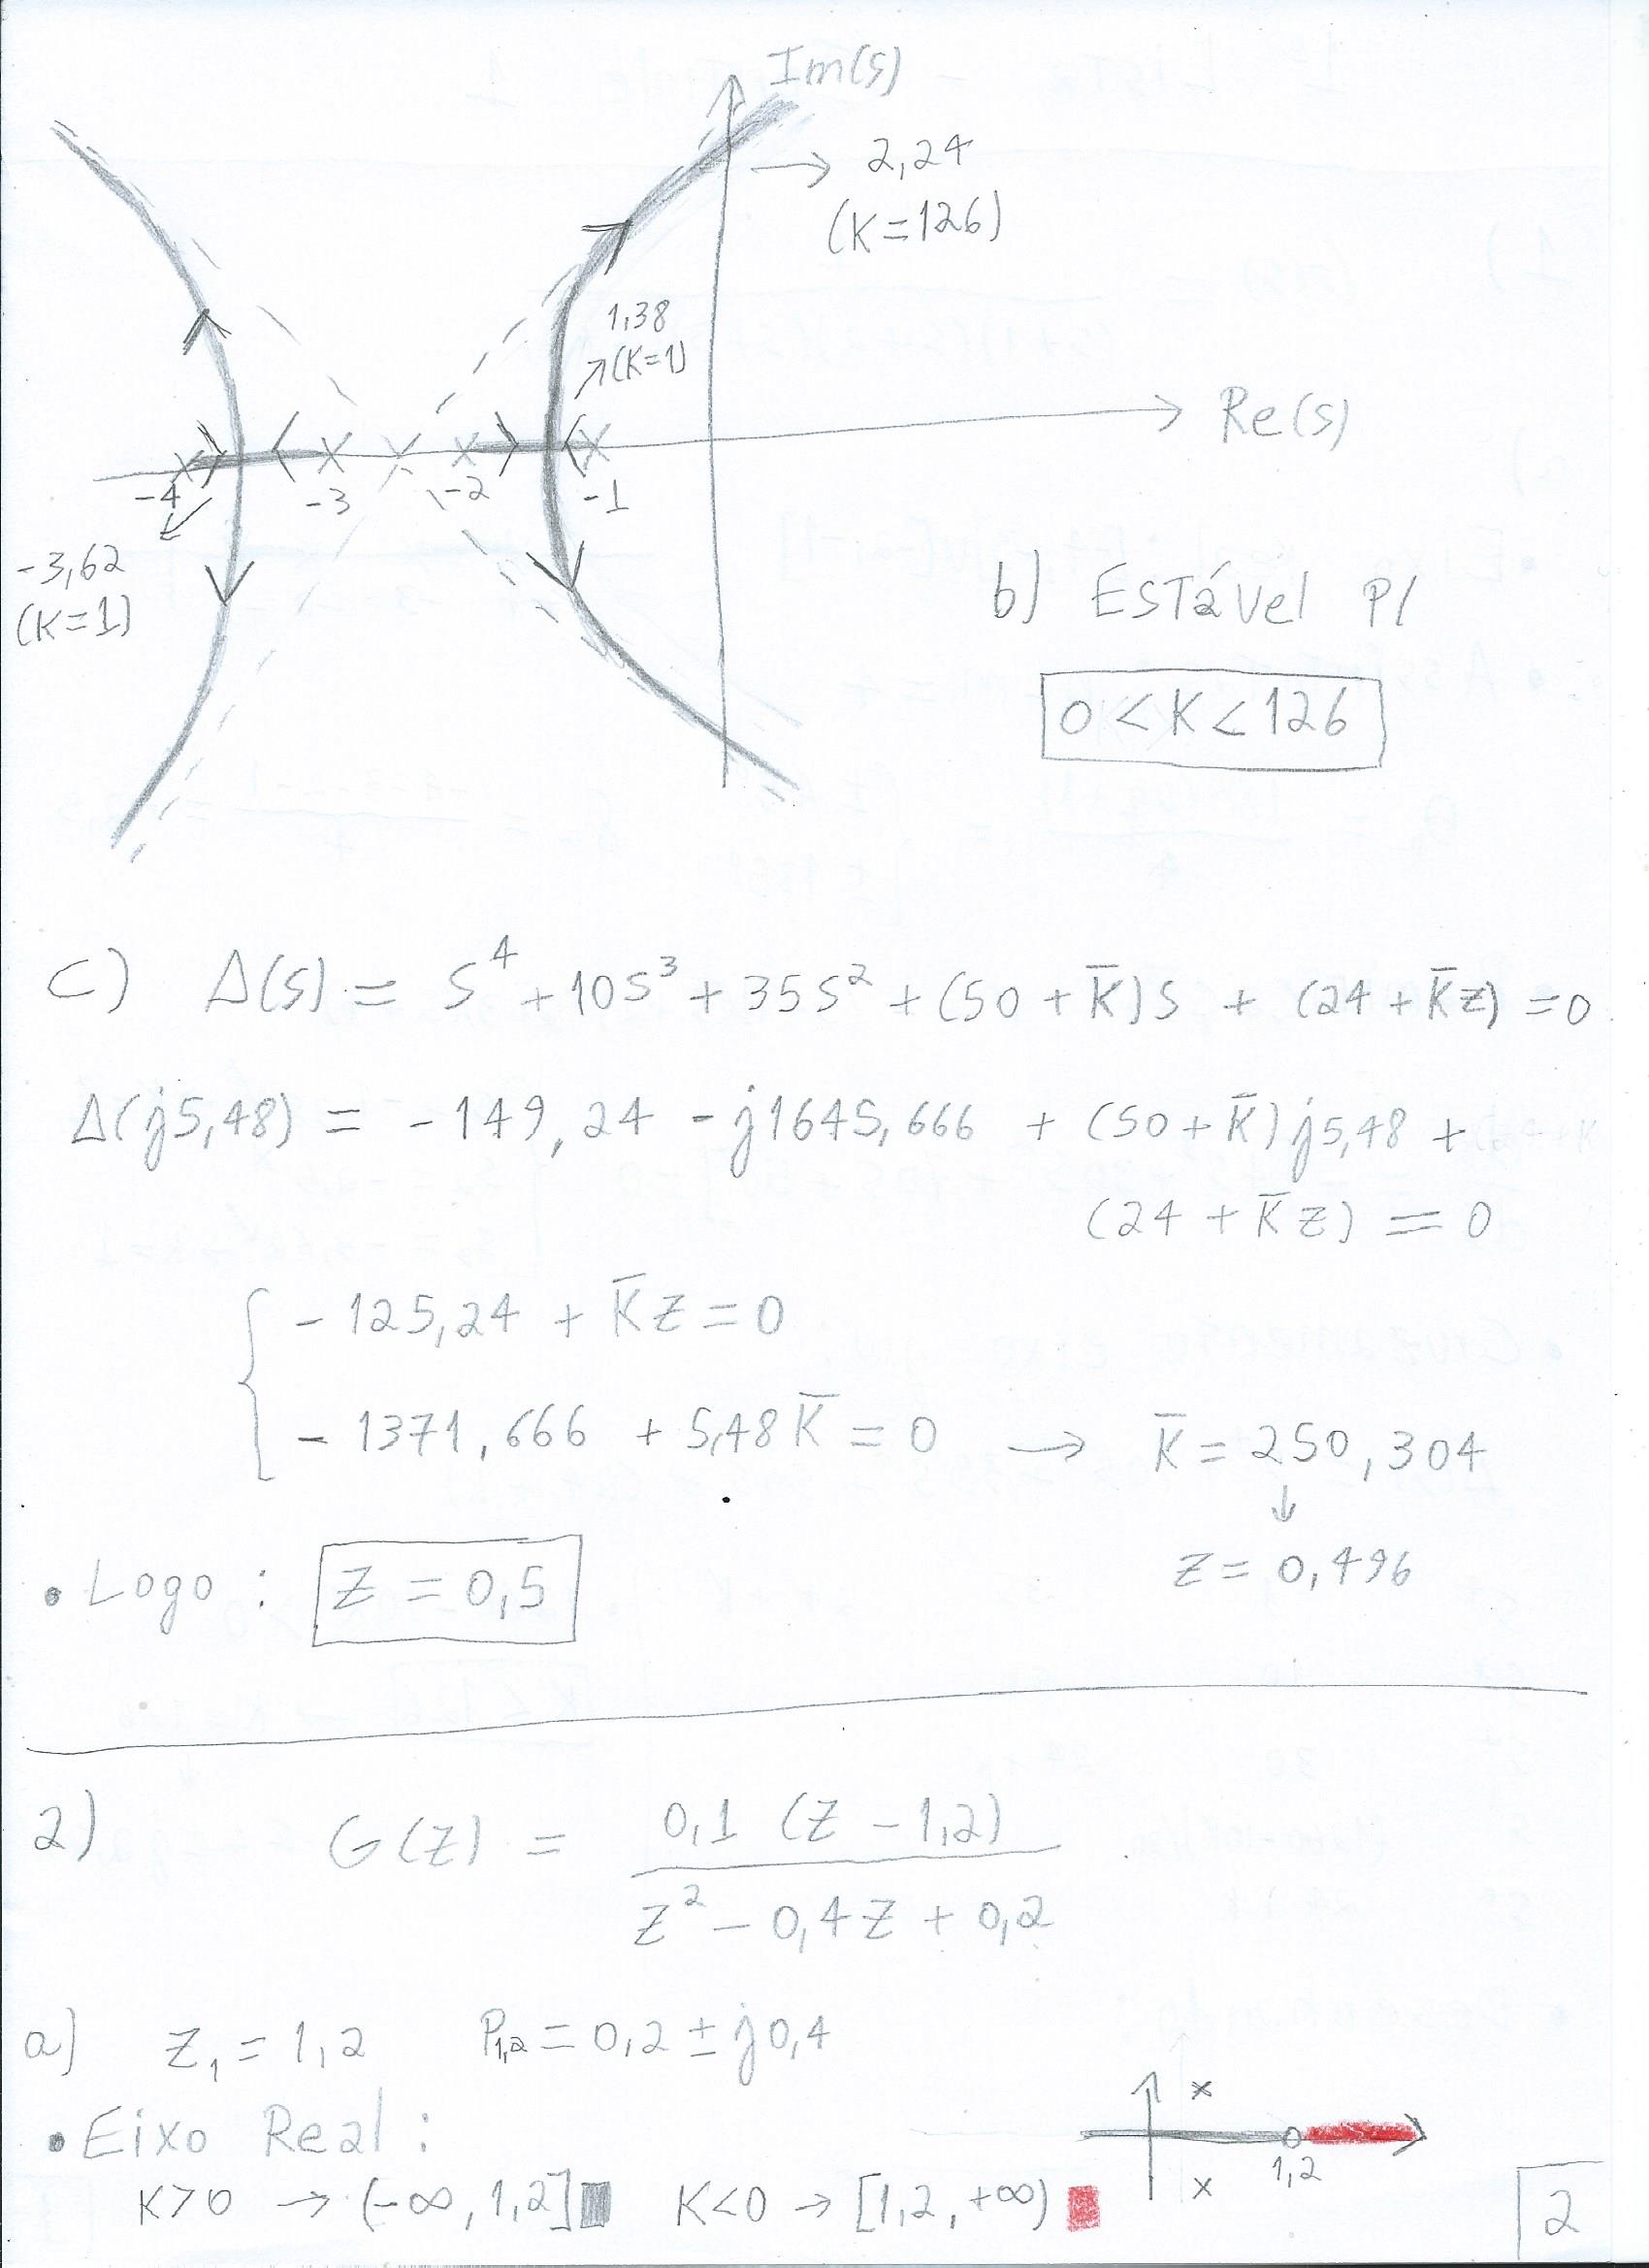 Im(s)
2,24
(K=126)
1,38
(K=1)
Re(s)
-4 -3 -2 -1
-3,62
(K=1)
b) Estável P/
0 < K < 126
C) Δ(s) = s⁴ + 10s³ + 35s² + (50 + K̄)s + (24 + K̄z) = 0
Δ(j5,48) = -149,24 - j1645,666 + (50 + K̄)j5,48 +
(24 + K̄z) = 0
- 125,24 + K̄z = 0
- 1371,666 + 5,48K̄ = 0 → K̄ = 250,304
↓
z = 0,496
• Logo : z = 0,5
2) G(z) = 0,1 (z - 1,2)
z² - 0,4z + 0,2
a) z₁ = 1,2 P₁,₂ = 0,2 ± j0,4
• Eixo Real :
1,2
K>0 → (-∞, 1,2] K<0 → [1,2, +∞)
2